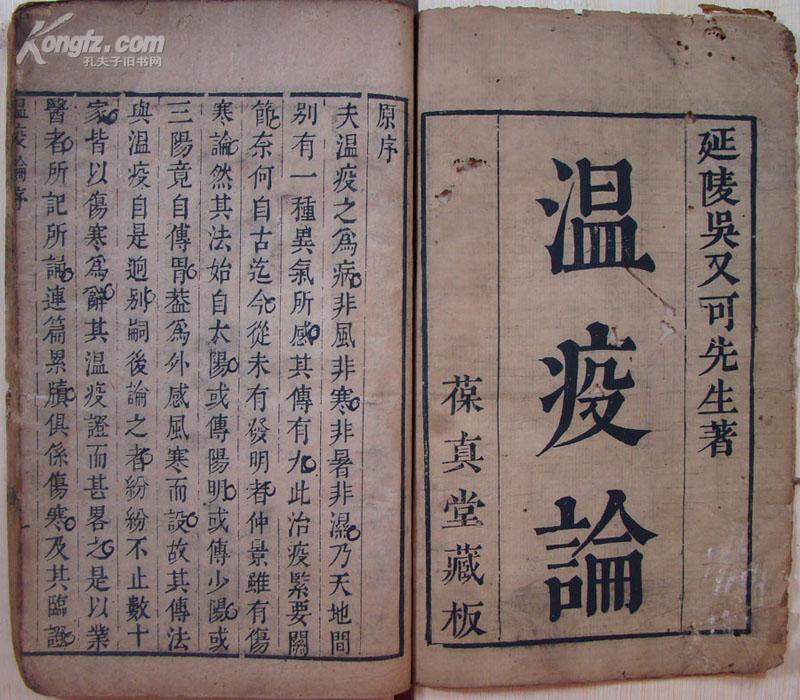 Kongfz.com
孔夫子旧书网
延陵吳又可先生著
温疫論
葆真堂藏板
原序
夫温疫之爲病非風非寒非暑非濕乃天地間
别有一種異氣所感其傳有九此治疫緊要關
節奈何自古迄今從未有發明者仲景雖有傷
寒論然其法始自太陽或傳陽明或傳少陽或
三陽竟自傳胃葢爲外感風寒而設故其傳法
與温疫自是逈别嗣後論之者紛紛不止數十
家皆以傷寒爲辭其温疫證而甚畧之是以業
醫者所記所誦連篇累牘俱係傷寒及其臨證
温疫論序
一